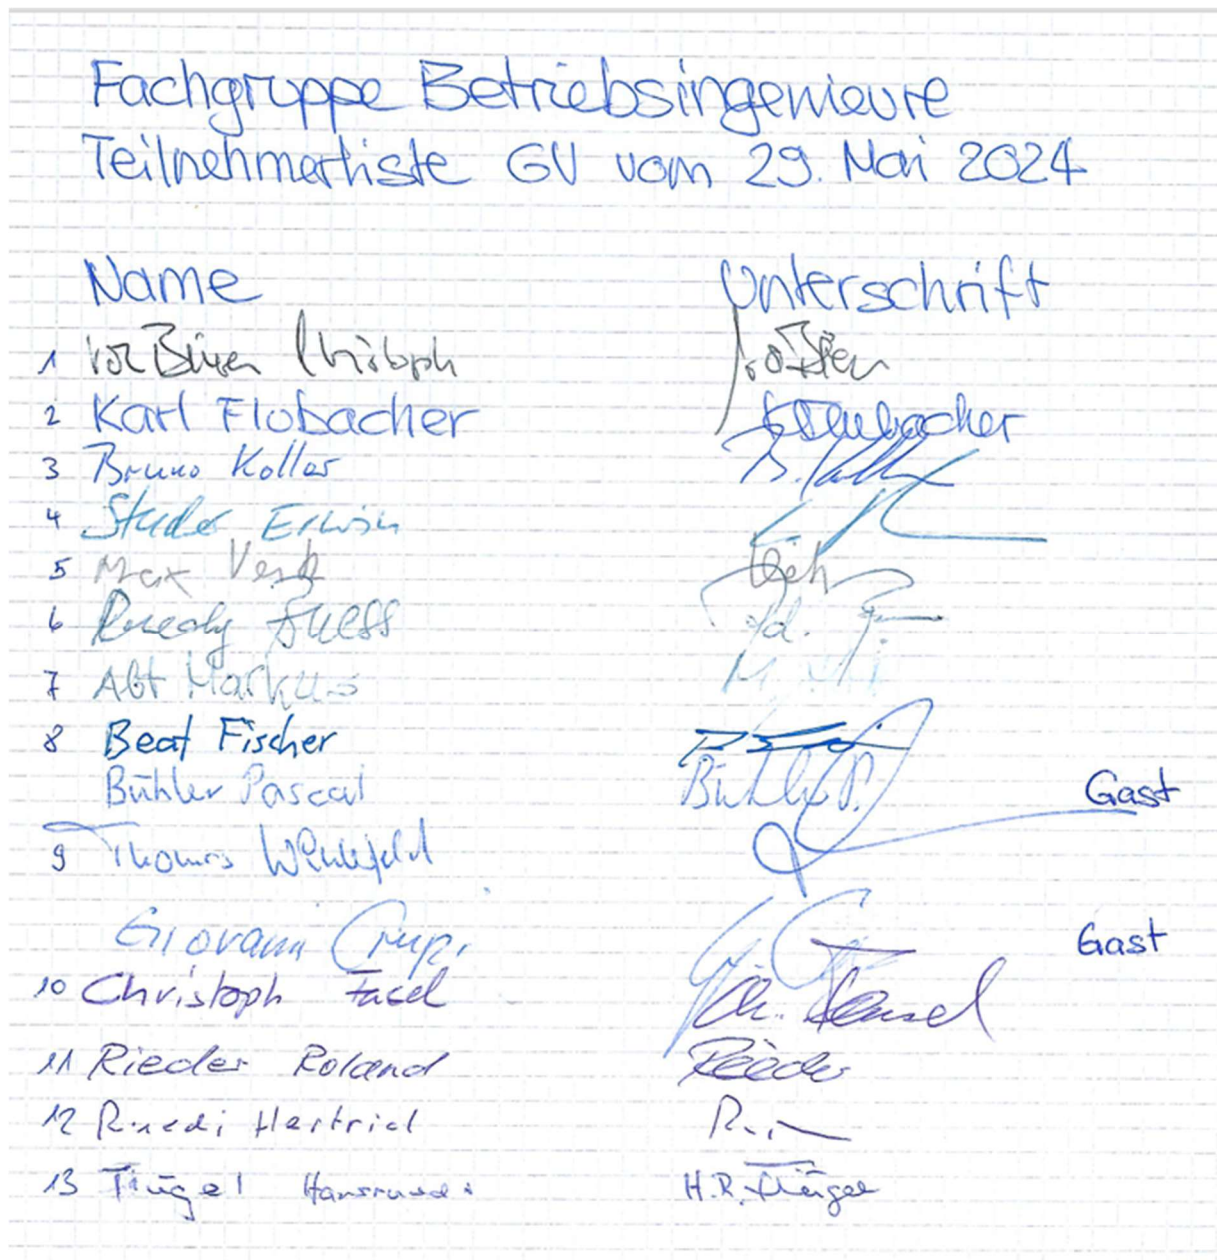 Fachgruppe Betriebsingenieure
Teilnehmerliste GV vom 29. Mai 2024
Name Unterschrift
1 von Büren Christoph
2 Karl Flobacher
3 Bruno Koller B. Koller
4 Studer Erwin
5 Max
6 Ruedy
7 Abt Markus
8 Beat Fischer
Bühler Pascal Bühler P. Gast
9 Thomas
Giovanni Crupi Gast
10 Christoph Fasel Ch. Fasel
11 Rieder Roland Rieder
12 Ruedi Hertrich
13 Flügel Hansruedi H.R. Flügel